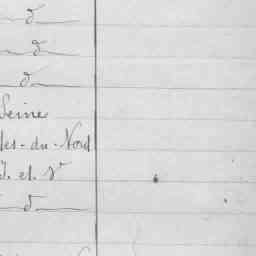 d
d
d
Seine
des-du-Nord
I. et V
d